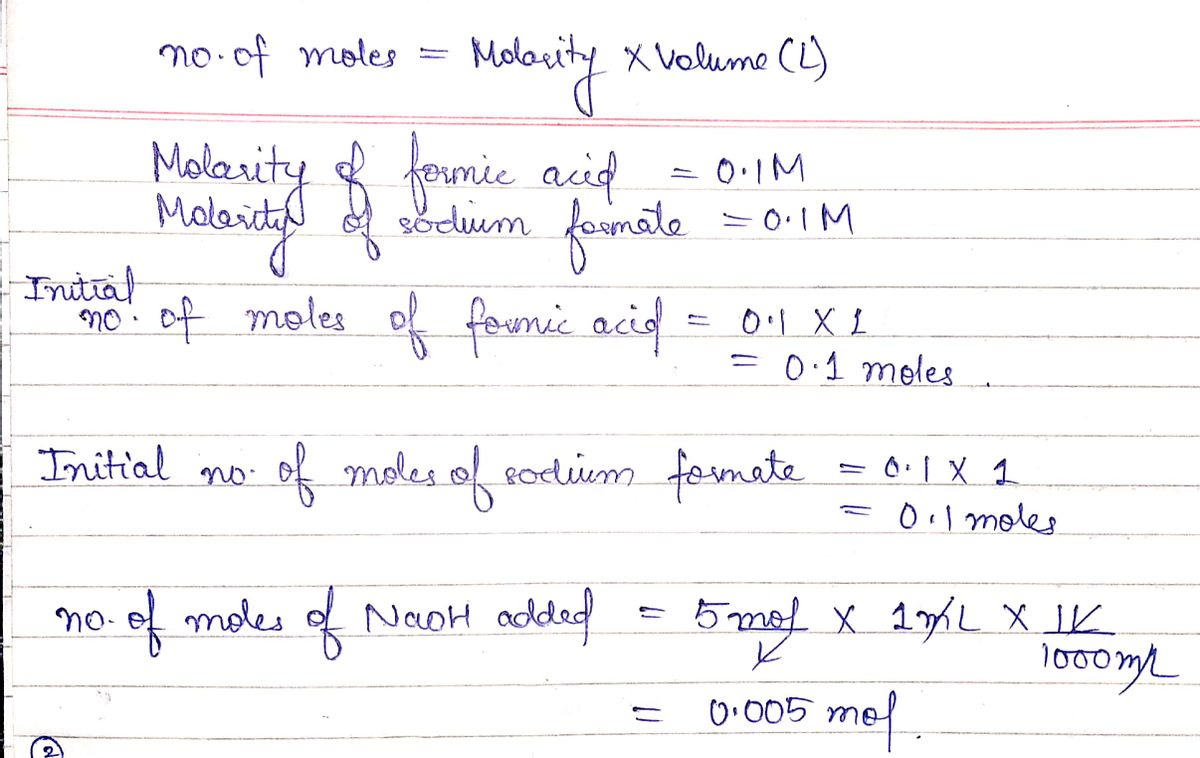 no. of moles = Molarity × Volume (L)
Molarity of formic acid = 0.1M
Molarity of sodium formate = 0.1 M
Initial
no. of moles of formic acid = 0.1 × 1
= 0.1 moles.
Initial no. of moles of sodium formate = 0.1 × 1
= 0.1 moles
no. of moles of NaOH added = 5 mol/L × 1 mL × 1L/1000 mL
= 0.005 mol.
2